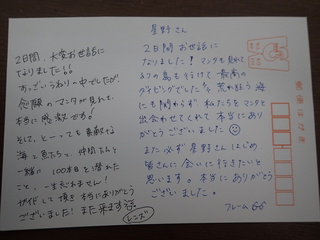 2日間、大変お世話に
なりました!!
すっごいうねりの中でしたが、
念願のマンタが見れて、
本当に感激です!
そして、とーっても素敵な
海と魚たちと、仲間たちと
一緒に100本目を潜れた
こと、一生忘れません!
ガイドして頂き本当にありがとう
ございました!また来ます
レンズ
星野さん
2日間お世話に
なりました!マンタも見れて
も行けて、最高の
ダイビングでした 荒れ狂う海
にも関わらず 私たちをマンタと
出会わせてくれて本当にあり
がとうございました
また必ず星野さんはじめ
皆さんに会いに行きたいと
思います。本当にありがとう
ございました。
フレーム66
郵便はがき